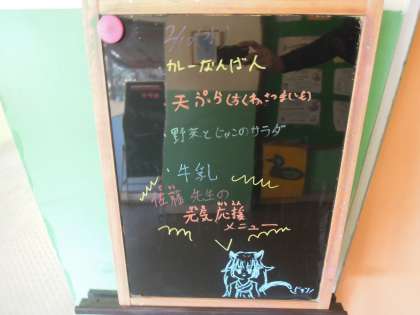 カレーなんば人
・天ぷら(ちくわ、さつまいも)
・野菜とじゃこのサラダ
・牛乳
さとう
佐藤 先生の
げんき おうえん
元気 応援
メニュー